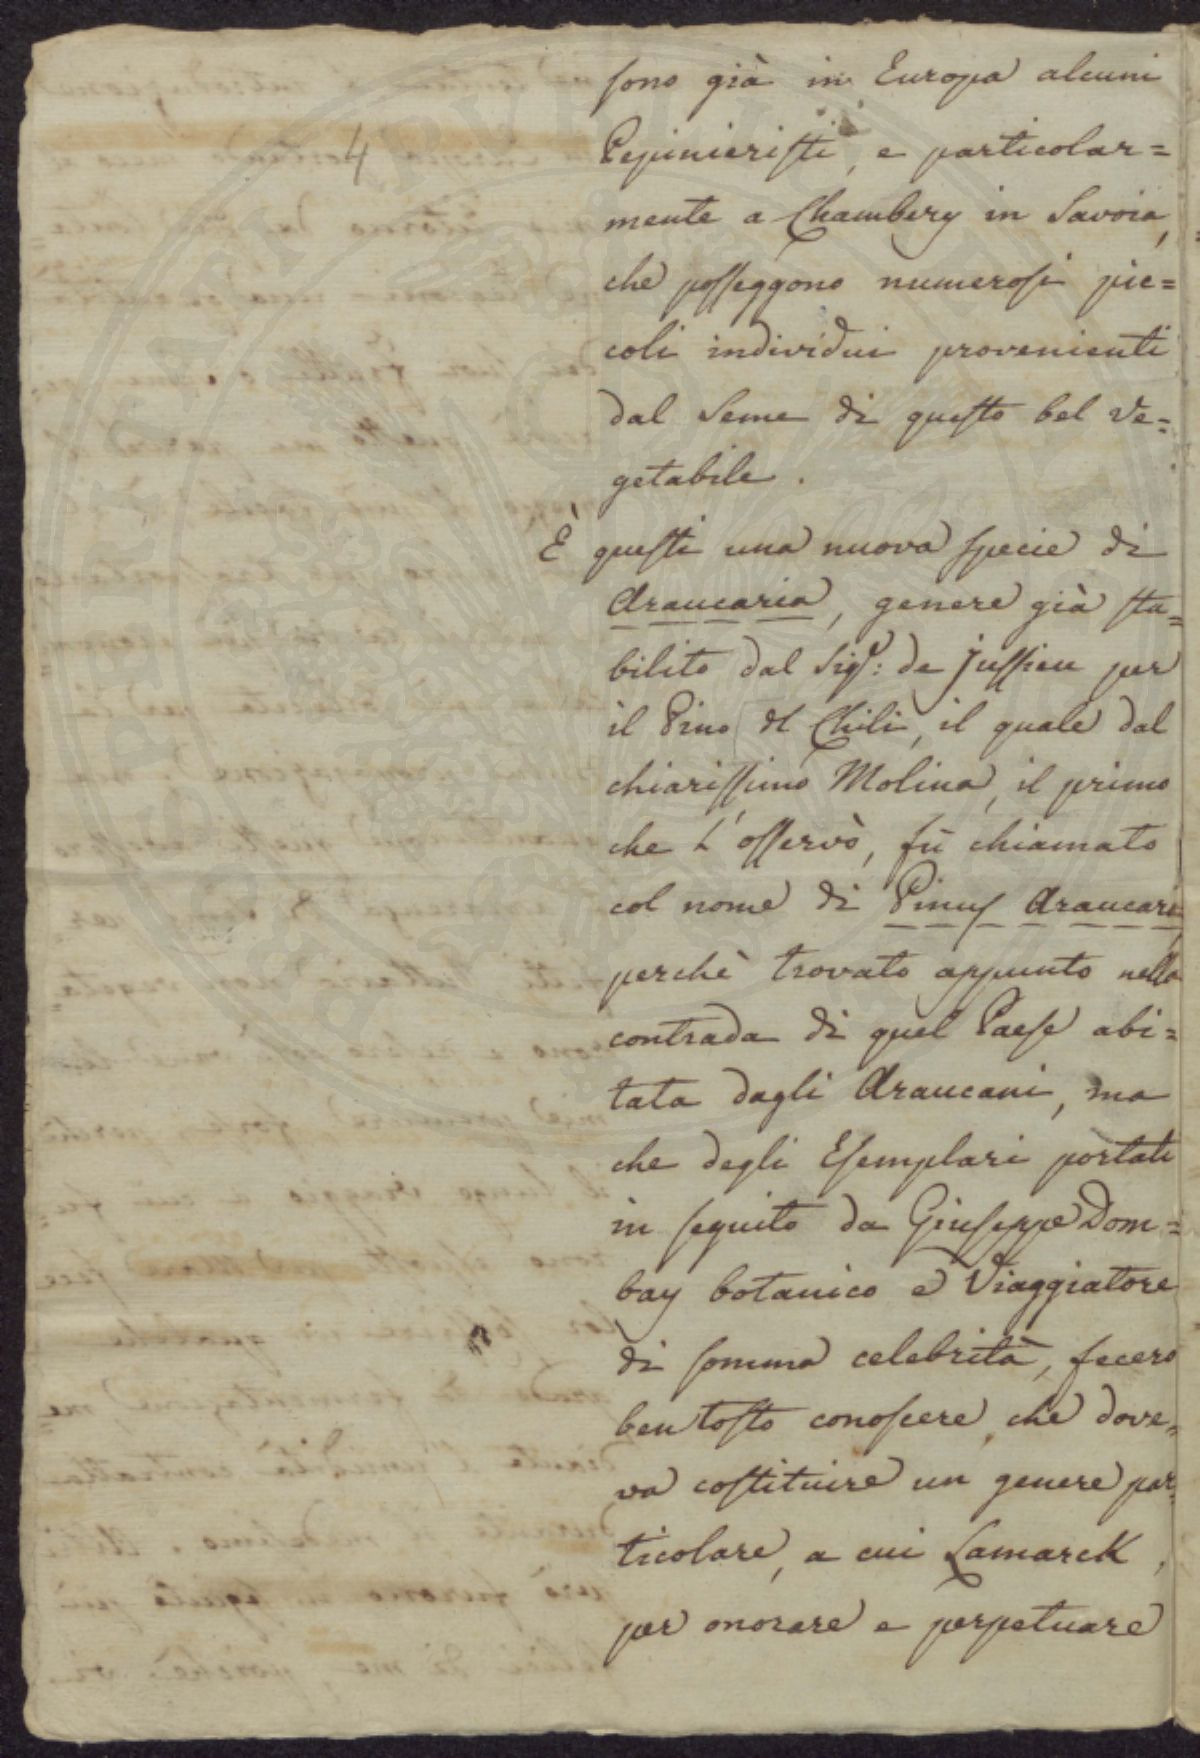 4
sono già in Europa alcuni
Pepinieristi, e particolar=
mente a Chambery in Savoia,
che posseggono numerosi pic=
coli individui provenienti
dal Seme di questo bel Ve=
getabile.
È questi una nuova specie di
Araucaria, genere già sta=
bilito dal Sigr: de Jussieu per
il Pino del Chilì, il quale dal
chiarissimo Molina, il primo
che l'osservò, fù chiamato
col nome di Pinus Araucaria
perchè trovato appunto nella
contrada di quel Paese abi=
tata dagli Araucani, ma
che degli Esemplari portati
in seguito da Giuseppe Dom=
bay botanico e Viaggiatore
di somma celebrità, fecero
ben tosto conoscere, che dove=
va costituire un genere par=
ticolare, a cui Lamarck,
per onorare e perpetuare